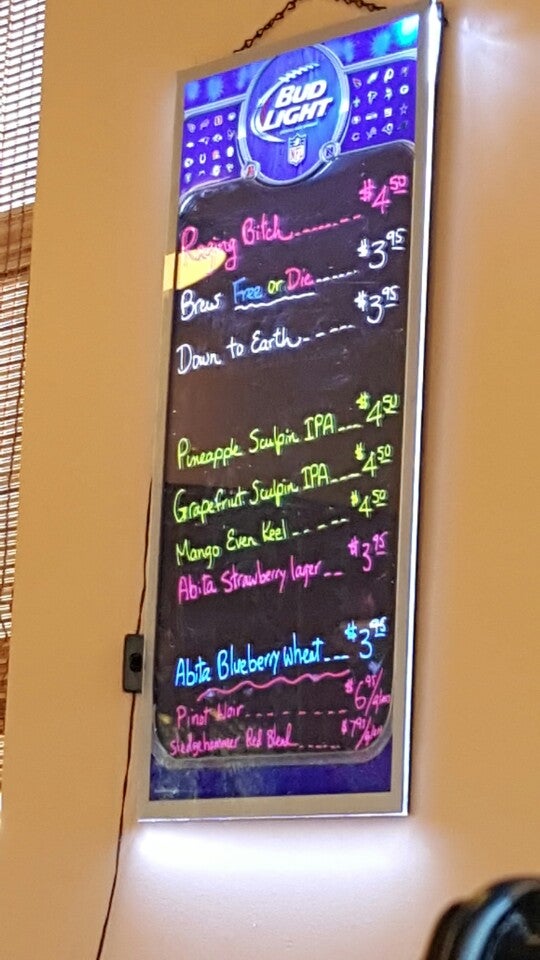 BUD
LIGHT
NFL
Raging Bitch-------- $4.50
Brew Free or Die------ $3.95
Down to Earth------ $3.95
Pineapple Sculpin IPA--- $4.50
Grapefriut Sculpin IPA--- $4.50
Mango Even Keel------ $4.50
Abita Strawberry lager--- $3.95
Abita Blueberry Wheat--- $3.95
Pinot Noir----------- $6.95/glass
Sledgehammer Red Blend------ $7.95/glass